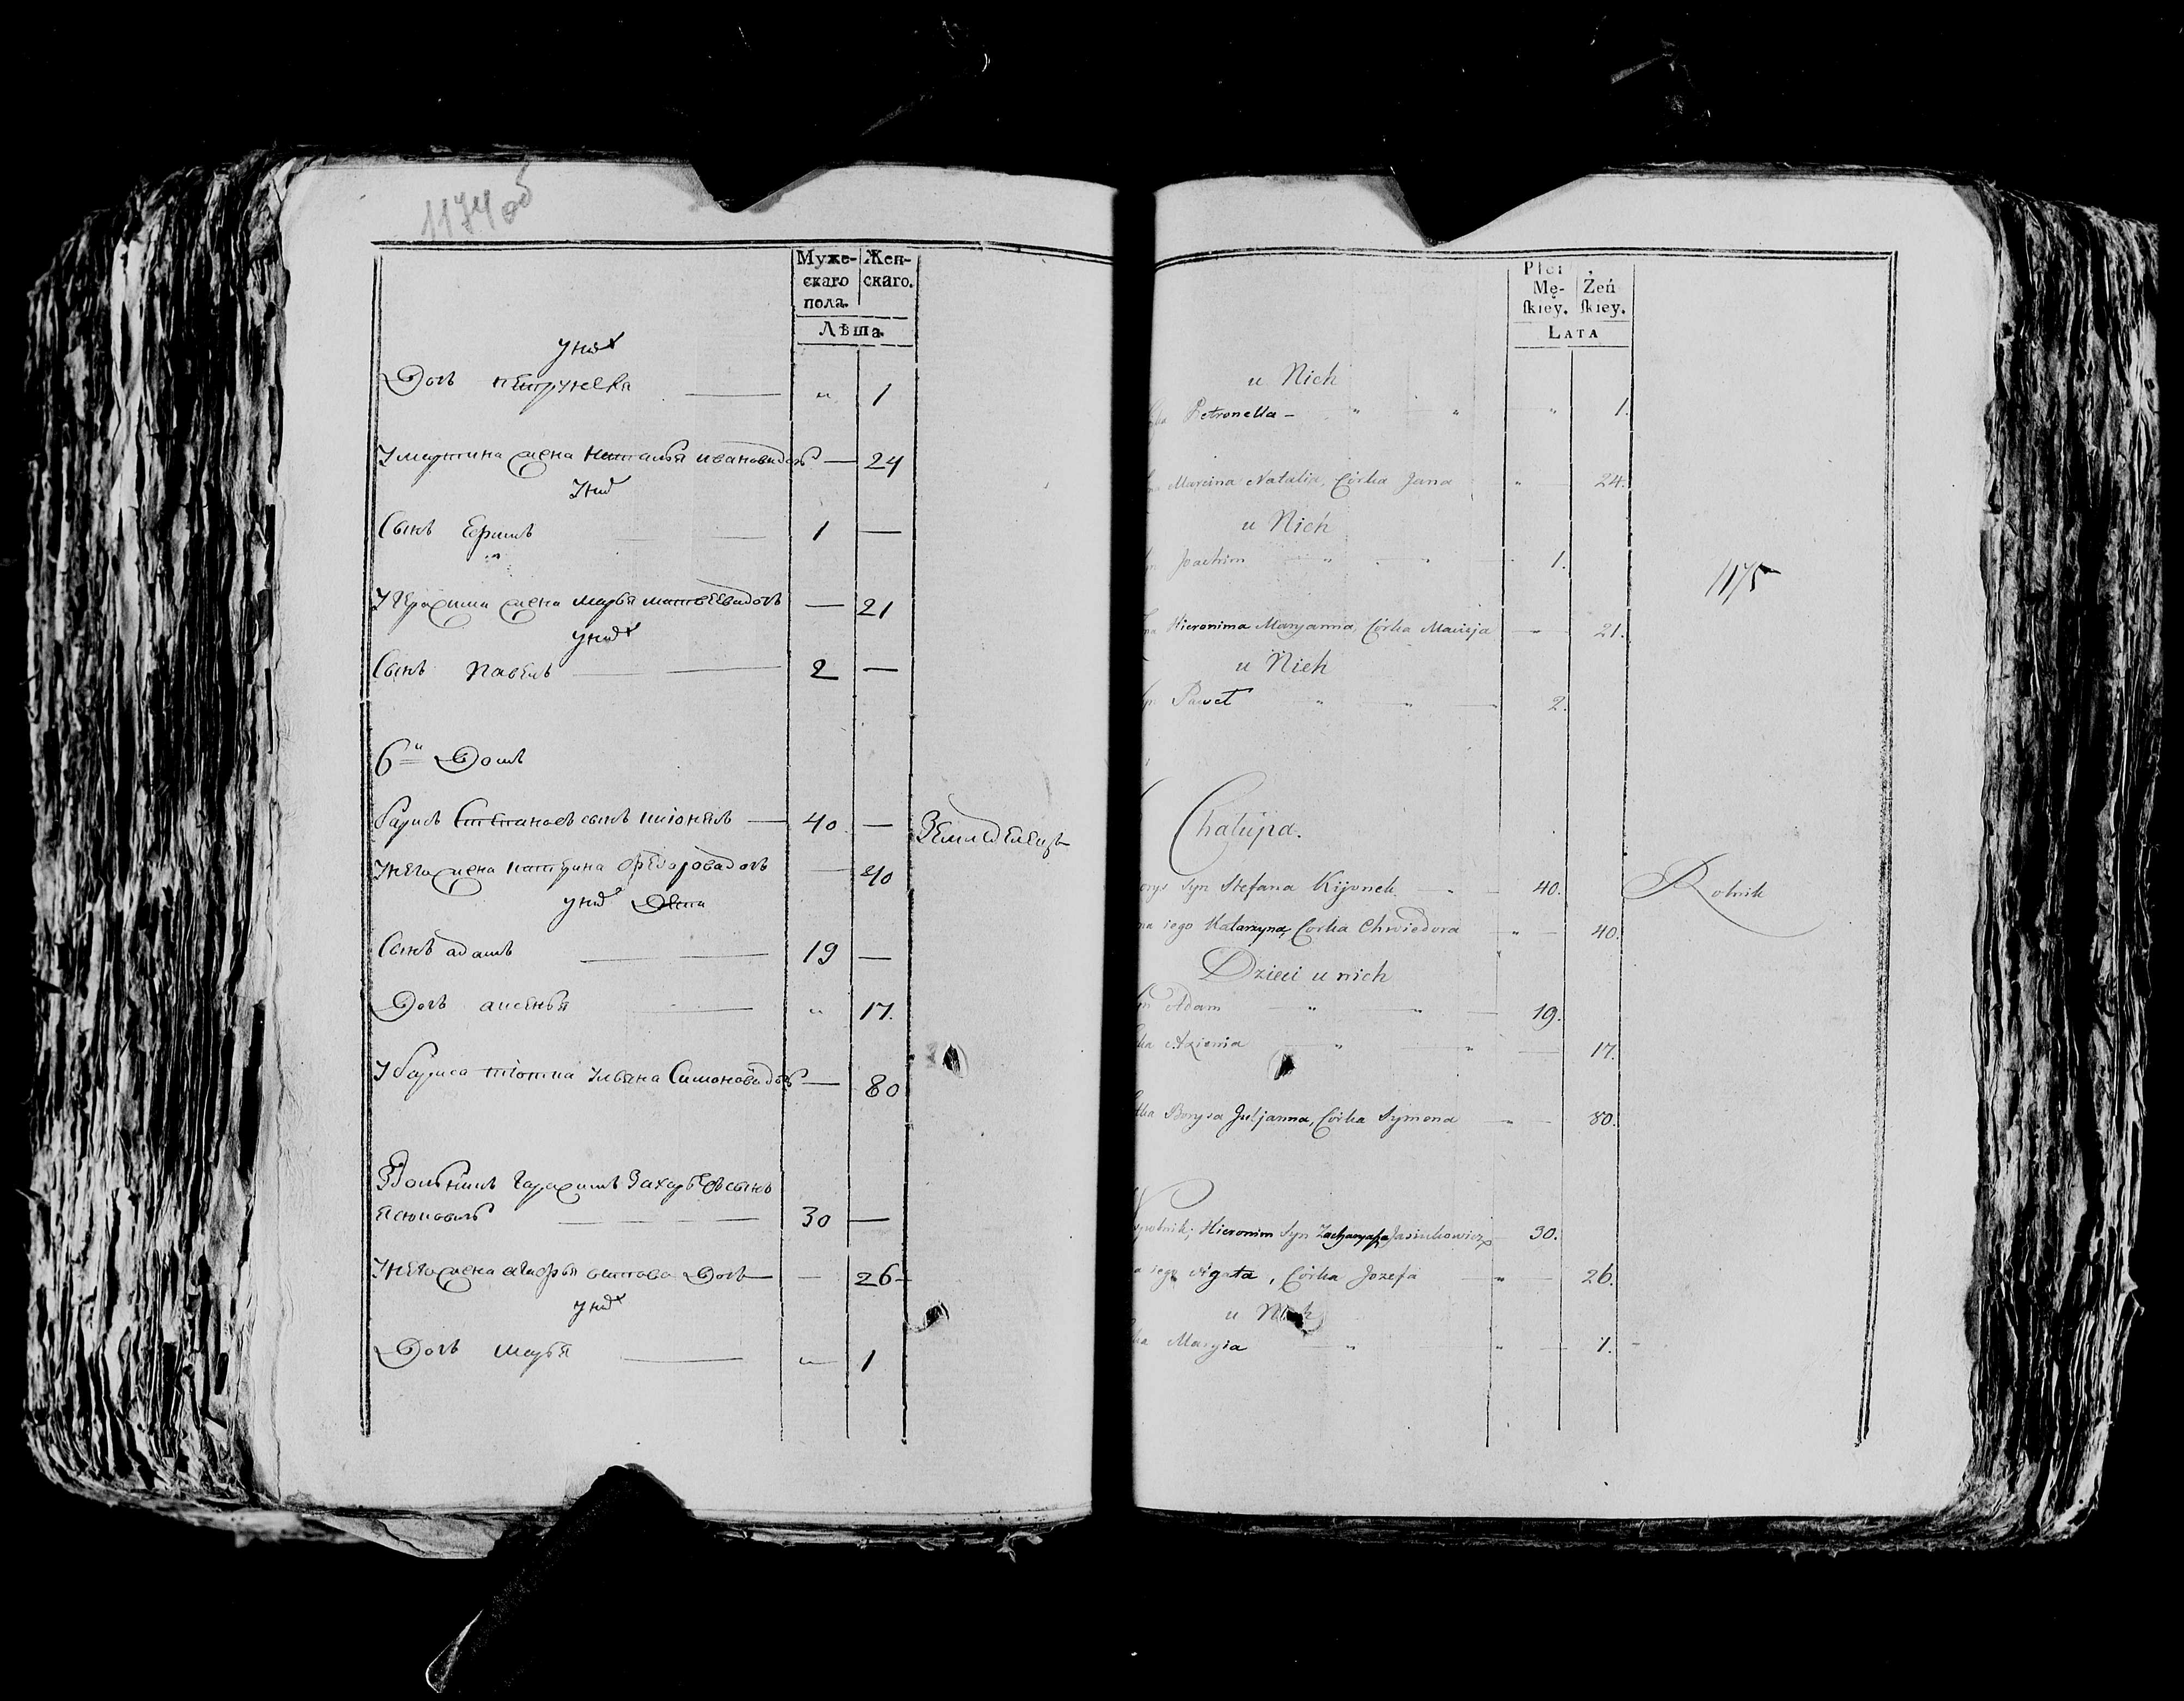 1174 об
Муже- Жен-
скаго скаго.
пола.
Лѣта.
у них
Дочь петрунелка — " 1
У мартина жена наталья иванова дочь — 24
У них
Сынъ Ефимъ 1 —
У Герасима жена марья матвеева дочь — 21
у них
Сынъ павелъ 2 —
6й Домъ
барисъ Степановъ сынъ кіюнекъ — 40 — Земледелецъ
У него жена катерина федорова дочь — 40
у них дети
Сынъ адамъ 19 —
Дочь аксенья " 17.
У бариса тіотка ульяна Симонова дочь — 80
Герасимъ Захарьевъ сынъ
ясюковичъ 30 —
У него жена агафья осипова Дочь — 26
у них
Дочь марья " 1
Płci
Mę- Żeń
skiey. skiey.
LATA
u Nich
Petronella - " " " 1.
Marcina Natalia, Córka Jana " 24.
u Nich
Joachim " " 1.
1175
Hieronima Maryanna, Córka Macieja 21.
u Nich
Paweł " " 2.
Chałupa.
Syn Stefana Kijonek 40. Rolnik
iego Katarzyna, Corka Chwiedora " 40.
Dzieci u nich
Adam " " 19.
Axienia " " 17.
Borysa Juljanna, Córka Symona " 80.
Hieronim Syn Zacharyasza Jasiukowicz 30.
iego Agata, Córka Jozefa " 26.
u Nich
Maryia " " 1.